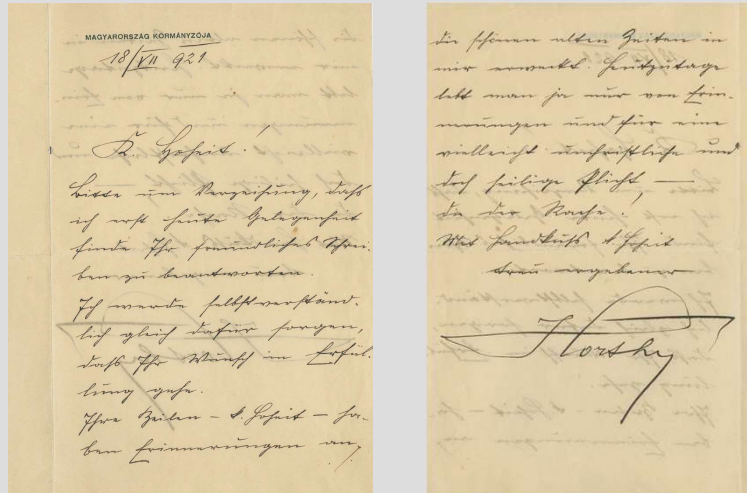 MAGYARORSZÁG KORMÁNYZÓJA
18/VII 921
K. Hoheit!
Bitte um Verzeihung, dass
ich erst heute Gelegenheit
finde Ihr freundliches Schrei-
ben zu beantworten.
Ich werde selbstverständ-
lich gleich dafür sorgen,
dass Ihr Wunsch in Erfül-
lung gehe.
Ihre Zeilen – k. Hoheit – ha-
ben Erinnerungen an
die schönen alten Zeiten in
mir erweckt. Heutzutage
lebt man ja nur von Erin-
nerungen und für eine
vielleicht unchristliche und
doch heilige Pflicht –
die der Rache.
Mit Handkuss k. Hoheit
treu ergebener
Horthy